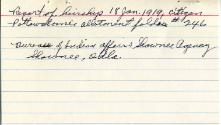 Report of heirship 18 Jan. 1919, Citizen
Pottawatomie allotment folder # 246
Bureau of Indian Affairs Shawnee Agency
Shawnee, Okla.